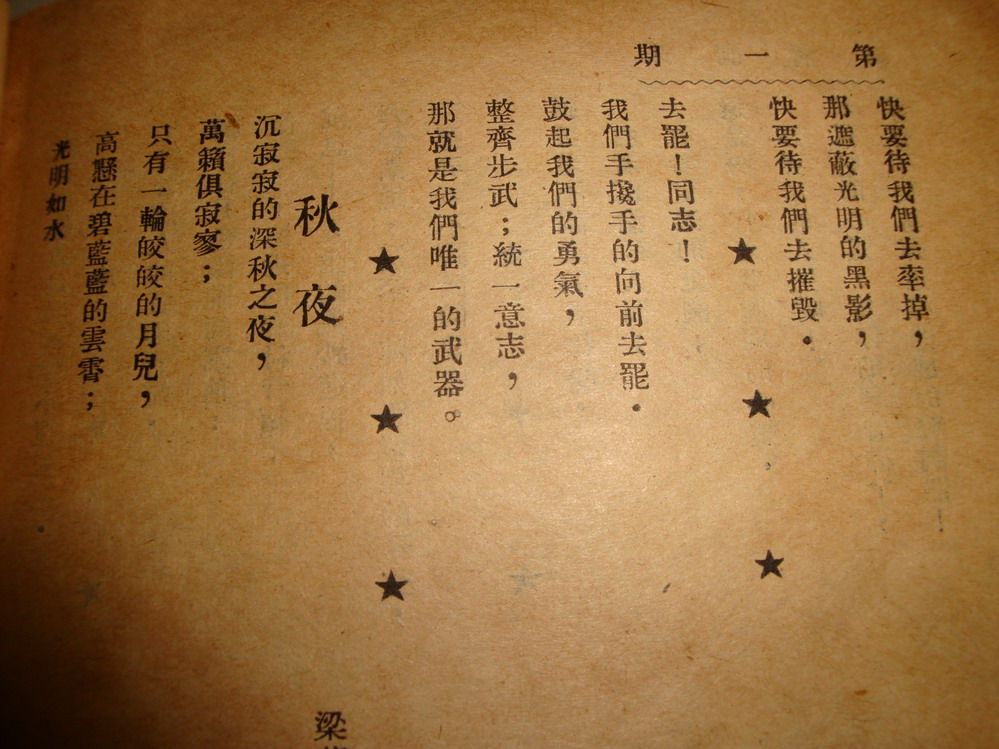 第一期
快要待我們去牽掉，
那遮蔽光明的黑影，
快要待我們去摧毀．
★★★
去罷！同志！
我們手攙手的向前去罷．
鼓起我們的勇氣，
整齊步武；統一意志，
那就是我們唯一的武器。
★★★
秋夜
梁
沉寂寂的深秋之夜，
萬籟俱寂寥；
只有一輪皎皎的月兒，
高懸在碧藍藍的雲霄；
光明如水